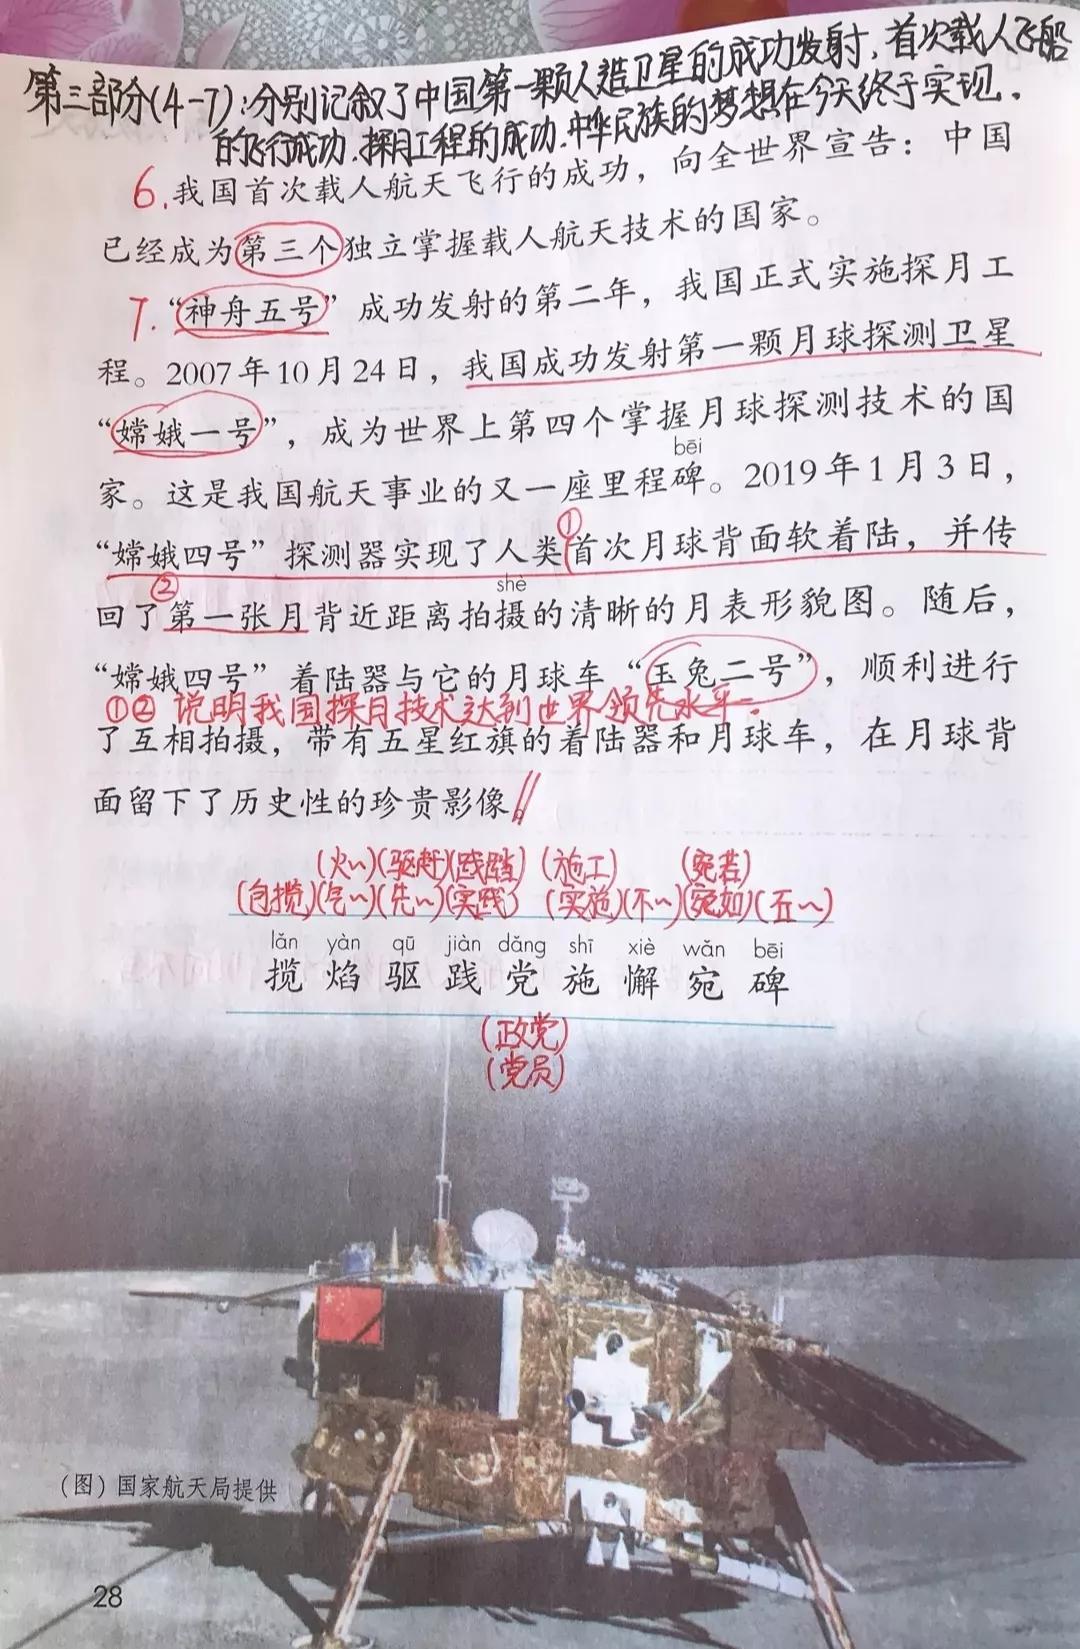 第三部分(4-7):分别记叙了中国第一颗人造卫星的成功发射、首次载人飞船
的飞行成功、探月工程的成功.中华民族的梦想在今天终于实现.
6.我国首次载人航天飞行的成功，向全世界宣告：中国
已经成为第三个独立掌握载人航天技术的国家。
7.“神舟五号”成功发射的第二年，我国正式实施探月工
程。2007年10月24日，我国成功发射第一颗月球探测卫星
“嫦娥一号”，成为世界上第四个掌握月球探测技术的国
bēi
家。这是我国航天事业的又一座里程碑。2019年1月3日，
①
“嫦娥四号”探测器实现了人类首次月球背面软着陆，并传
② shè
回了第一张月背近距离拍摄的清晰的月表形貌图。随后，
“嫦娥四号”着陆器与它的月球车“玉兔二号”，顺利进行
①② 说明我国探月技术达到世界领先水平。
了互相拍摄，带有五星红旗的着陆器和月球车，在月球背
面留下了历史性的珍贵影像!
(火~)(驱赶)(践踏) (施工) (宛若)
(包揽)(气~)(先~)(实践) (实施)(不~)(宛如)(丘~)
lǎn yàn qū jiàn dǎng shī xiè wǎn bēi
揽 焰 驱 践 党 施 懈 宛 碑
(政党)
(党员)
（图）国家航天局提供
28